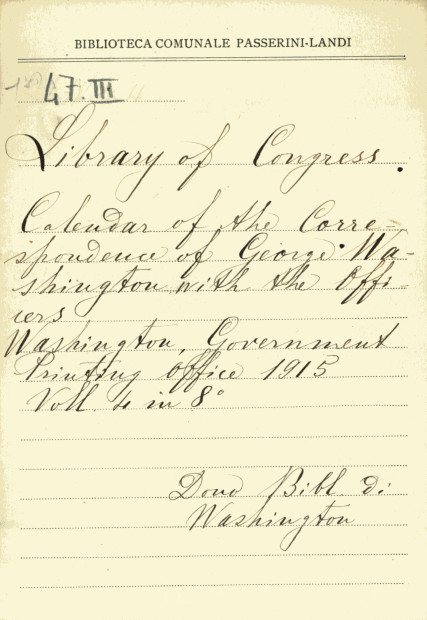 BIBLIOTECA COMUNALE PASSERINI-LANDI
47.III
Library of Congress.
Calendar of the Corre-
spondence of George Wa-
shington with the Offi-
cers
Washington, Government
Printing Office 1915
Voll. 4 in 8°
Dono Bibl. di
Washington